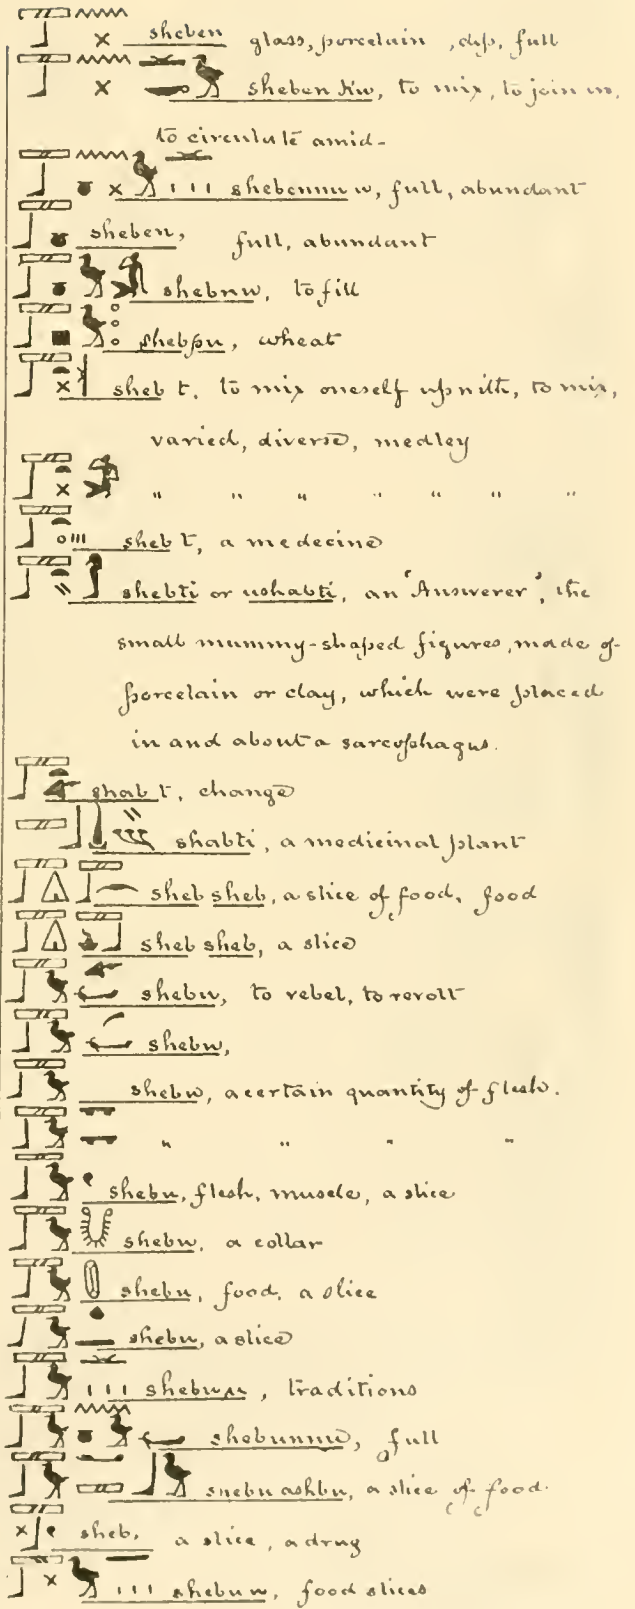 sheben glass, porcelain, dip, full
sheben kw, to mix, to join in,
to circulate amid-
shebennu w, full, abundant
sheben, full, abundant
shebnw, to fill
shebpu, wheat
sheb t, to mix oneself up with, to mix,
varied, diverse, medley
" " " " " " "
sheb t, a medecine
shebti or ushabti, an "Answerer", the
small mummy-shaped figures, made of
porcelain or clay, which were placed
in and about a sarcophagus.
shab t, change
shabti, a medicinal plant
sheb sheb, a slice of food, food
sheb sheb, a slice
shebu, to rebel, to revolt
shebw,
shebw, a certain quantity of flesh.
" " " "
shebu, flesh, muscle, a slice
shebw, a collar
shebu, food, a slice
shebu, a slice
traditions
shebunnw, full
shebu ashbu, a slice of food.
sheb, a slice, a drug
shebuw, food slices